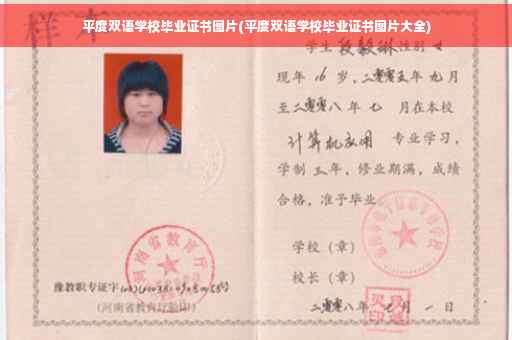 平度双语学校毕业证书图片(平度双语学校毕业证书图片大全)
样本
学生段毅琳性别女
现年16岁，二零零五年九月
至二零零八年七月在本校
计算机应用 专业学习，
学制三年，修业期满，成绩
合格，准予毕业
学校（章）
校长（章）
河南省教育厅
豫教职专证字
(河南省教育厅验印)
二零零八年七月一日